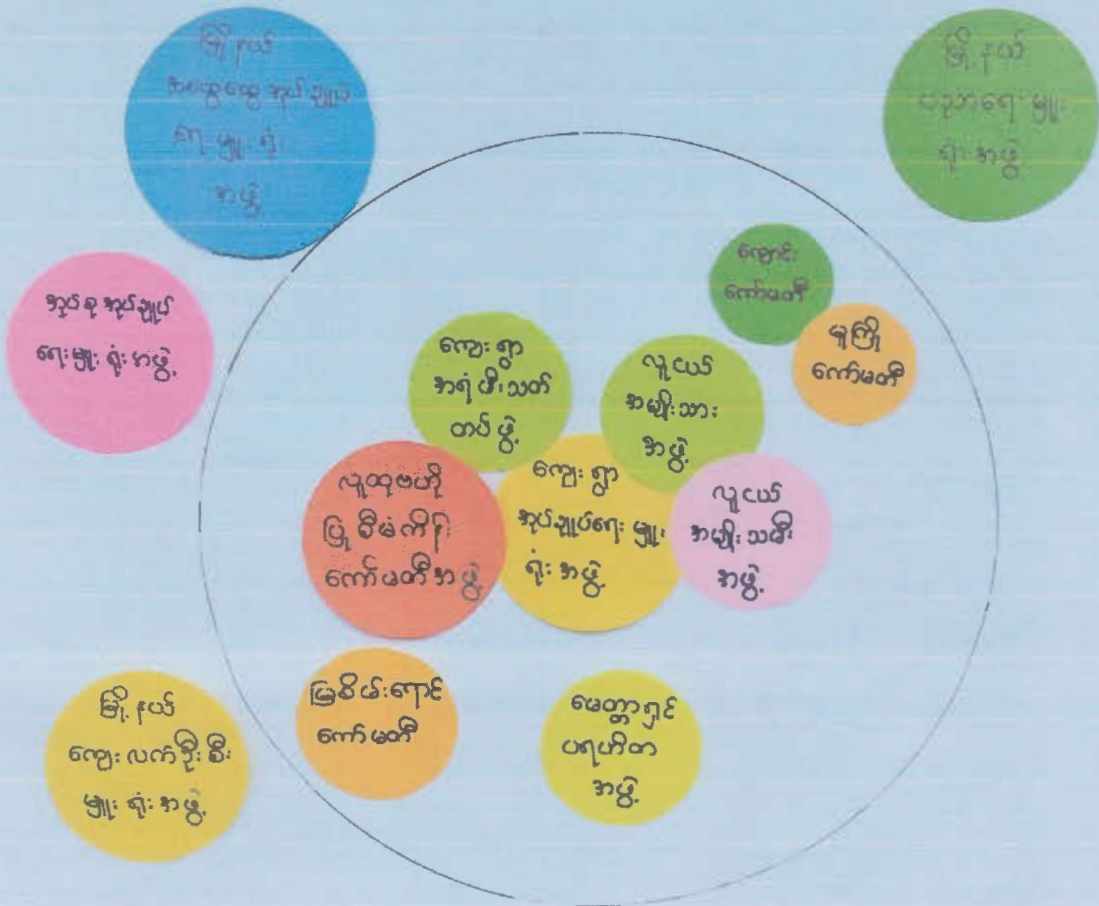 မြို့နယ်
အထွေထွေအုပ်ချုပ်
ရေးမှူးရုံး
အဖွဲ့
မြို့နယ်
ပညာရေးမှူး
ရုံးအဖွဲ့
ကျောင်း
ကော်မတီ
အုပ်စုအုပ်ချုပ်
ရေးမှူးရုံးအဖွဲ့
မူကြို
ကော်မတီ
ကျေးရွာ
အရံမီးသတ်
တပ်ဖွဲ့
လူငယ်
အမျိုးသား
အဖွဲ့
လူထုဗဟို
ပြုစီမံကိန်း
ကော်မတီအဖွဲ့
ကျေးရွာ
အုပ်ချုပ်ရေးမှူး
ရုံးအဖွဲ့
လူငယ်
အမျိုးသမီး
အဖွဲ့
မြစိမ်းရောင်
ကော်မတီ
မေတ္တာရှင်
ပရဟိတ
အဖွဲ့
မြို့နယ်
ကျေးလက်ဦးစီး
မှူးရုံးအဖွဲ့